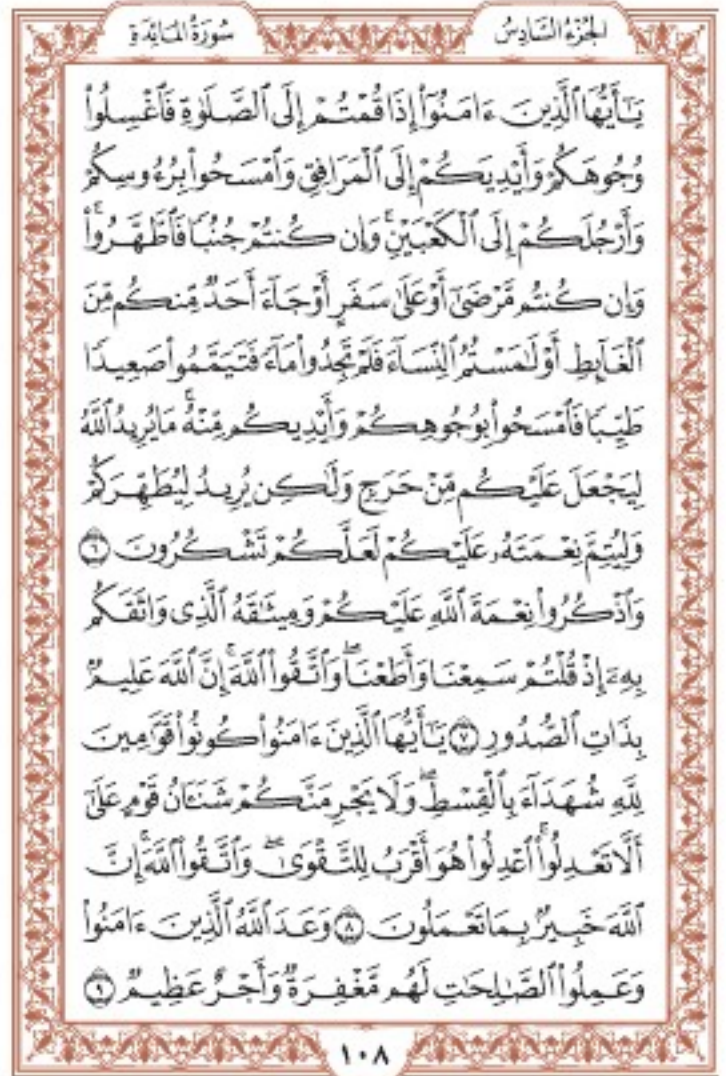 الجُزْءُ السَّادِسُ
سُورَةُ المَائِدَةِ
يَـٰٓأَيُّهَا ٱلَّذِينَ ءَامَنُوٓا۟ إِذَا قُمْتُمْ إِلَى ٱلصَّلَوٰةِ فَٱغْسِلُوا۟
وُجُوهَكُمْ وَأَيْدِيَكُمْ إِلَى ٱلْمَرَافِقِ وَٱمْسَحُوا۟ بِرُءُوسِكُمْ
وَأَرْجُلَكُمْ إِلَى ٱلْكَعْبَيْنِ ۚ وَإِن كُنتُمْ جُنُبًا فَٱطَّهَّرُوا۟ ۚ
وَإِن كُنتُم مَّرْضَىٰٓ أَوْ عَلَىٰ سَفَرٍ أَوْ جَآءَ أَحَدٌ مِّنكُم مِّنَ
ٱلْغَآئِطِ أَوْ لَـٰمَسْتُمُ ٱلنِّسَآءَ فَلَمْ تَجِدُوا۟ مَآءً فَتَيَمَّمُوا۟ صَعِيدًا
طَيِّبًا فَٱمْسَحُوا۟ بِوُجُوهِكُمْ وَأَيْدِيكُم مِّنْهُ ۚ مَا يُرِيدُ ٱللَّهُ
لِيَجْعَلَ عَلَيْكُم مِّنْ حَرَجٍ وَلَـٰكِن يُرِيدُ لِيُطَهِّرَكُمْ
وَلِيُتِمَّ نِعْمَتَهُۥ عَلَيْكُمْ لَعَلَّكُمْ تَشْكُرُونَ ٦
وَٱذْكُرُوا۟ نِعْمَةَ ٱللَّهِ عَلَيْكُمْ وَمِيثَـٰقَهُ ٱلَّذِى وَاثَقَكُم
بِهِۦٓ إِذْ قُلْتُمْ سَمِعْنَا وَأَطَعْنَا ۖ وَٱتَّقُوا۟ ٱللَّهَ ۚ إِنَّ ٱللَّهَ عَلِيمٌۢ
بِذَاتِ ٱلصُّدُورِ ٧ يَـٰٓأَيُّهَا ٱلَّذِينَ ءَامَنُوا۟ كُونُوا۟ قَوَّٰمِينَ
لِلَّهِ شُهَدَآءَ بِٱلْقِسْطِ ۖ وَلَا يَجْرِمَنَّكُمْ شَنَـَٔانُ قَوْمٍ عَلَىٰٓ
أَلَّا تَعْدِلُوا۟ ۚ ٱعْدِلُوا۟ هُوَ أَقْرَبُ لِلتَّقْوَىٰ ۖ وَٱتَّقُوا۟ ٱللَّهَ ۚ إِنَّ
ٱللَّهَ خَبِيرٌۢ بِمَا تَعْمَلُونَ ٨ وَعَدَ ٱللَّهُ ٱلَّذِينَ ءَامَنُوا۟
وَعَمِلُوا۟ ٱلصَّـٰلِحَـٰتِ لَهُم مَّغْفِرَةٌ وَأَجْرٌ عَظِيمٌ ٩
١٠٨